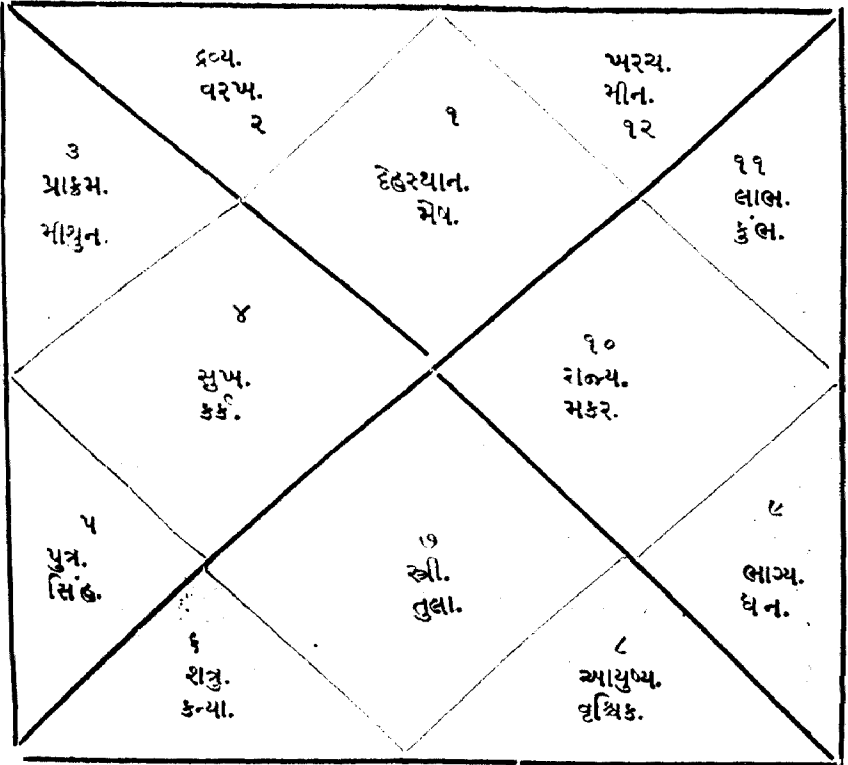 દ્રવ્ય.
વરખ.
૨
૧
દેહસ્થાન.
મેષ.
ખરચ.
મીન.
૧૨
૩
પ્રાક્રમ.
મીથુન.
૧૧
લાભ.
કુંભ.
૪
સુખ.
કર્ક.
૧૦
રાજ્ય.
મકર.
૫
પુત્ર.
સિંહ.
૭
સ્ત્રી.
તુલા.
૯
ભાગ્ય.
ધન.
૬
શત્રુ.
કન્યા.
૮
આયુષ્ય.
વૃશ્ચિક.